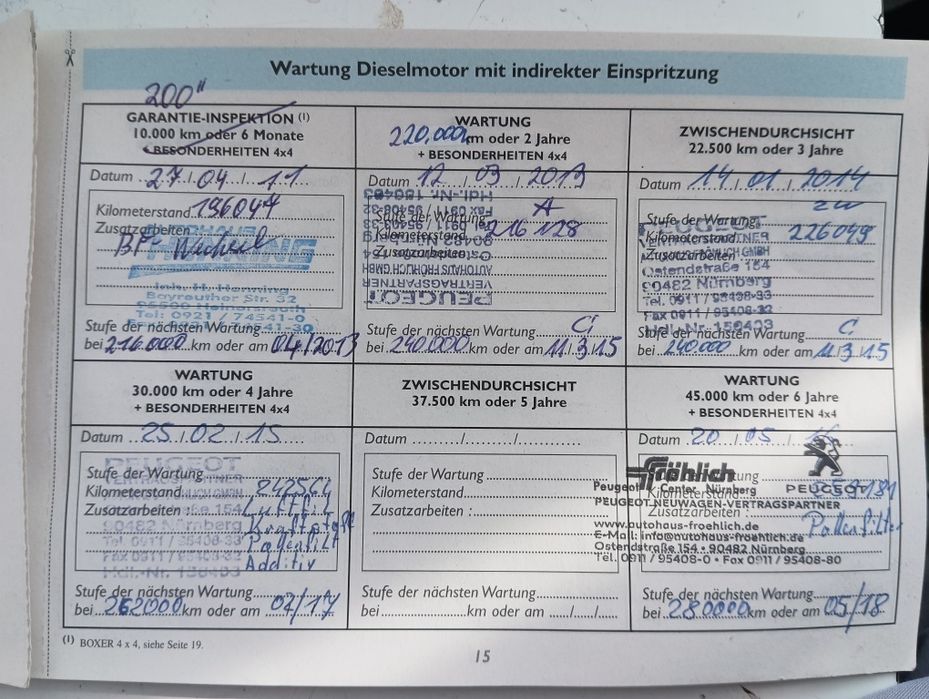 Wartung Dieselmotor mit indirekter Einspritzung
200"
GARANTIE-INSPEKTION (1)
10.000 km oder 6 Monate
+ BESONDERHEITEN 4x4
Datum 27/04/11
Kilometerstand 196047
Zusatzarbeiten
BF Wechsel
Inh. H. Henning
Bayreuther Str. 32
95500 Heinersreuth
Tel: 0921 / 74541-0
41-30
Stufe der nächsten Wartung
bei 216000 km oder am 04/2013
WARTUNG
220.000 km oder 2 Jahre
+ BESONDERHEITEN 4x4
Datum 12/03/2013
Stufe der Wartung A
Kilometerstand 216128
Zusatzarbeiten
PEUGEOT
VERTRAGSPARTNER
AUTOHAUS FRÖHLICH GMBH
Ostendstraße 154
90482 Nürnberg
Stufe der nächsten Wartung C
bei 240.000 km oder am 11/3/15
ZWISCHENDURCHSICHT
22.500 km oder 3 Jahre
Datum 14/01/2014
Stufe der Wartung ZW
Kilometerstand 226049
Zusatzarbeiten
Ostendstraße 154
90482 Nürnberg
Tel. 0911 / 95408-33
Fax 0911 / 95408-32
Stufe der nächsten Wartung C
bei 240000 km oder am 11/3/15
WARTUNG
30.000 km oder 4 Jahre
+ BESONDERHEITEN 4x4
Datum 25/02/15
PEUGEOT
Stufe der Wartung
Kilometerstand 242564
Zusatzarbeiten : Luftfilt
Kraftstoff
90482 Nürnberg
Pollenfilt
Additiv
Stufe der nächsten Wartung
bei 262000 km oder am 02/17
ZWISCHENDURCHSICHT
37.500 km oder 5 Jahre
Datum ....../....../......
Stufe der Wartung
Kilometerstand
Zusatzarbeiten :
Stufe der nächsten Wartung
bei ........ km oder am ..../..../....
WARTUNG
45.000 km oder 6 Jahre
+ BESONDERHEITEN 4x4
Datum 20/05/
Fröhlich
Peugeot Center Nürnberg
PEUGEOT
PEUGEOT NEUWAGEN-VERTRAGSPARTNER
Zusatzarbeiten :
Pollenfilter
www.autohaus-froehlich.de
E-Mail: info@autohaus-froehlich.de
Ostendstraße 154 • 90482 Nürnberg
Tel. 0911 / 95408-0 • Fax 0911 / 95408-80
Stufe der nächsten Wartung
bei 280000 km oder am 05/18
(1) BOXER 4 x 4, siehe Seite 19.
15